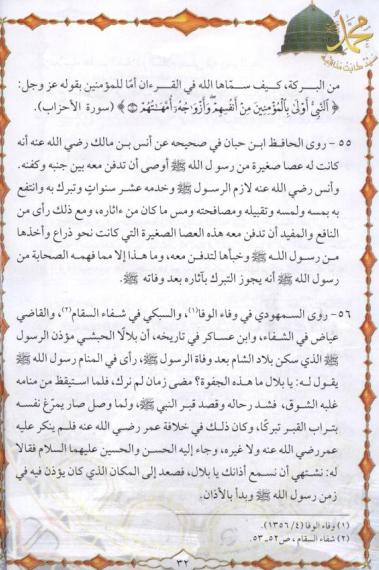 محمد
من البركة، كيف سمّاها الله في القرءان أمًّا للمؤمنين بقوله عز وجل:
﴿ ٱلنَّبِىُّ أَوْلَىٰ بِٱلْمُؤْمِنِينَ مِنْ أَنفُسِهِمْ ۖ وَأَزْوَٰجُهُۥٓ أُمَّهَـٰتُهُمْ ﴾ (سورة الأحزاب).
٥٥ - روى الحافظ ابن حبان في صحيحه عن أنس بن مالك رضي الله عنه أنه
كانت له عصا صغيرة من رسول الله ﷺ أوصى أن تدفن معه بين جنبه وكفنه.
وأنس رضي الله عنه لازم الرسول ﷺ وخدمه عشر سنوات وتبرك به وانتفع
به بمسه ولمسه وتقبيله ومصافحته ومس ما كان من ءاثاره، ومع ذلك رأى من
النافع والمفيد أن تدفن معه هذه العصا الصغيرة التي كانت نحو ذراع وأخذها
من رسول الله ﷺ وخبأها لتدفن معه، وما هذا إلا مما فهمه الصحابة من
رسول الله ﷺ أنه يجوز التبرك بآثاره بعد وفاته ﷺ.
٥٦- روى السمهودي في وفاء الوفا(١)، والسبكي في شفاء السقام(٢)، والقاضي
عياض في الشفاء، وابن عساكر في تاريخه، أن بلالًا الحبشي مؤذن الرسول
ﷺ الذي سكن بلاد الشام بعد وفاة الرسول ﷺ، رأى في المنام رسول الله ﷺ
يقول له: يا بلال ما هذه الجفوة؟ مضى زمان لم نرك، فلما استيقظ من منامه
غلبه الشوق، فشد رحاله وقصد قبر النبي ﷺ، ولما وصل صار يمرّغ نفسه
بتراب القبر تبركًا، وكان ذلك في خلافة عمر رضي الله عنه فلم ينكر عليه
عمر رضي الله عنه ولا غيره، وجاء إليه الحسن والحسين عليهما السلام فقالا
له: نشتهي أن نسمع أذانك يا بلال، فصعد إلى المكان الذي كان يؤذن فيه في
زمن رسول الله ﷺ وبدأ بالأذان.
(١) وفاء الوفا (٤/ ١٣٥٦).
(٢) شفاء السقام، ص٥٢ـ٥٣.
٣٢